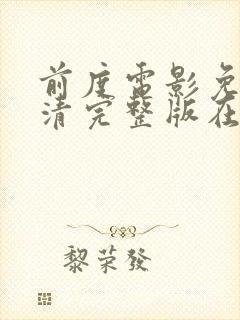 前度电影免
清完整版在
黎荣發